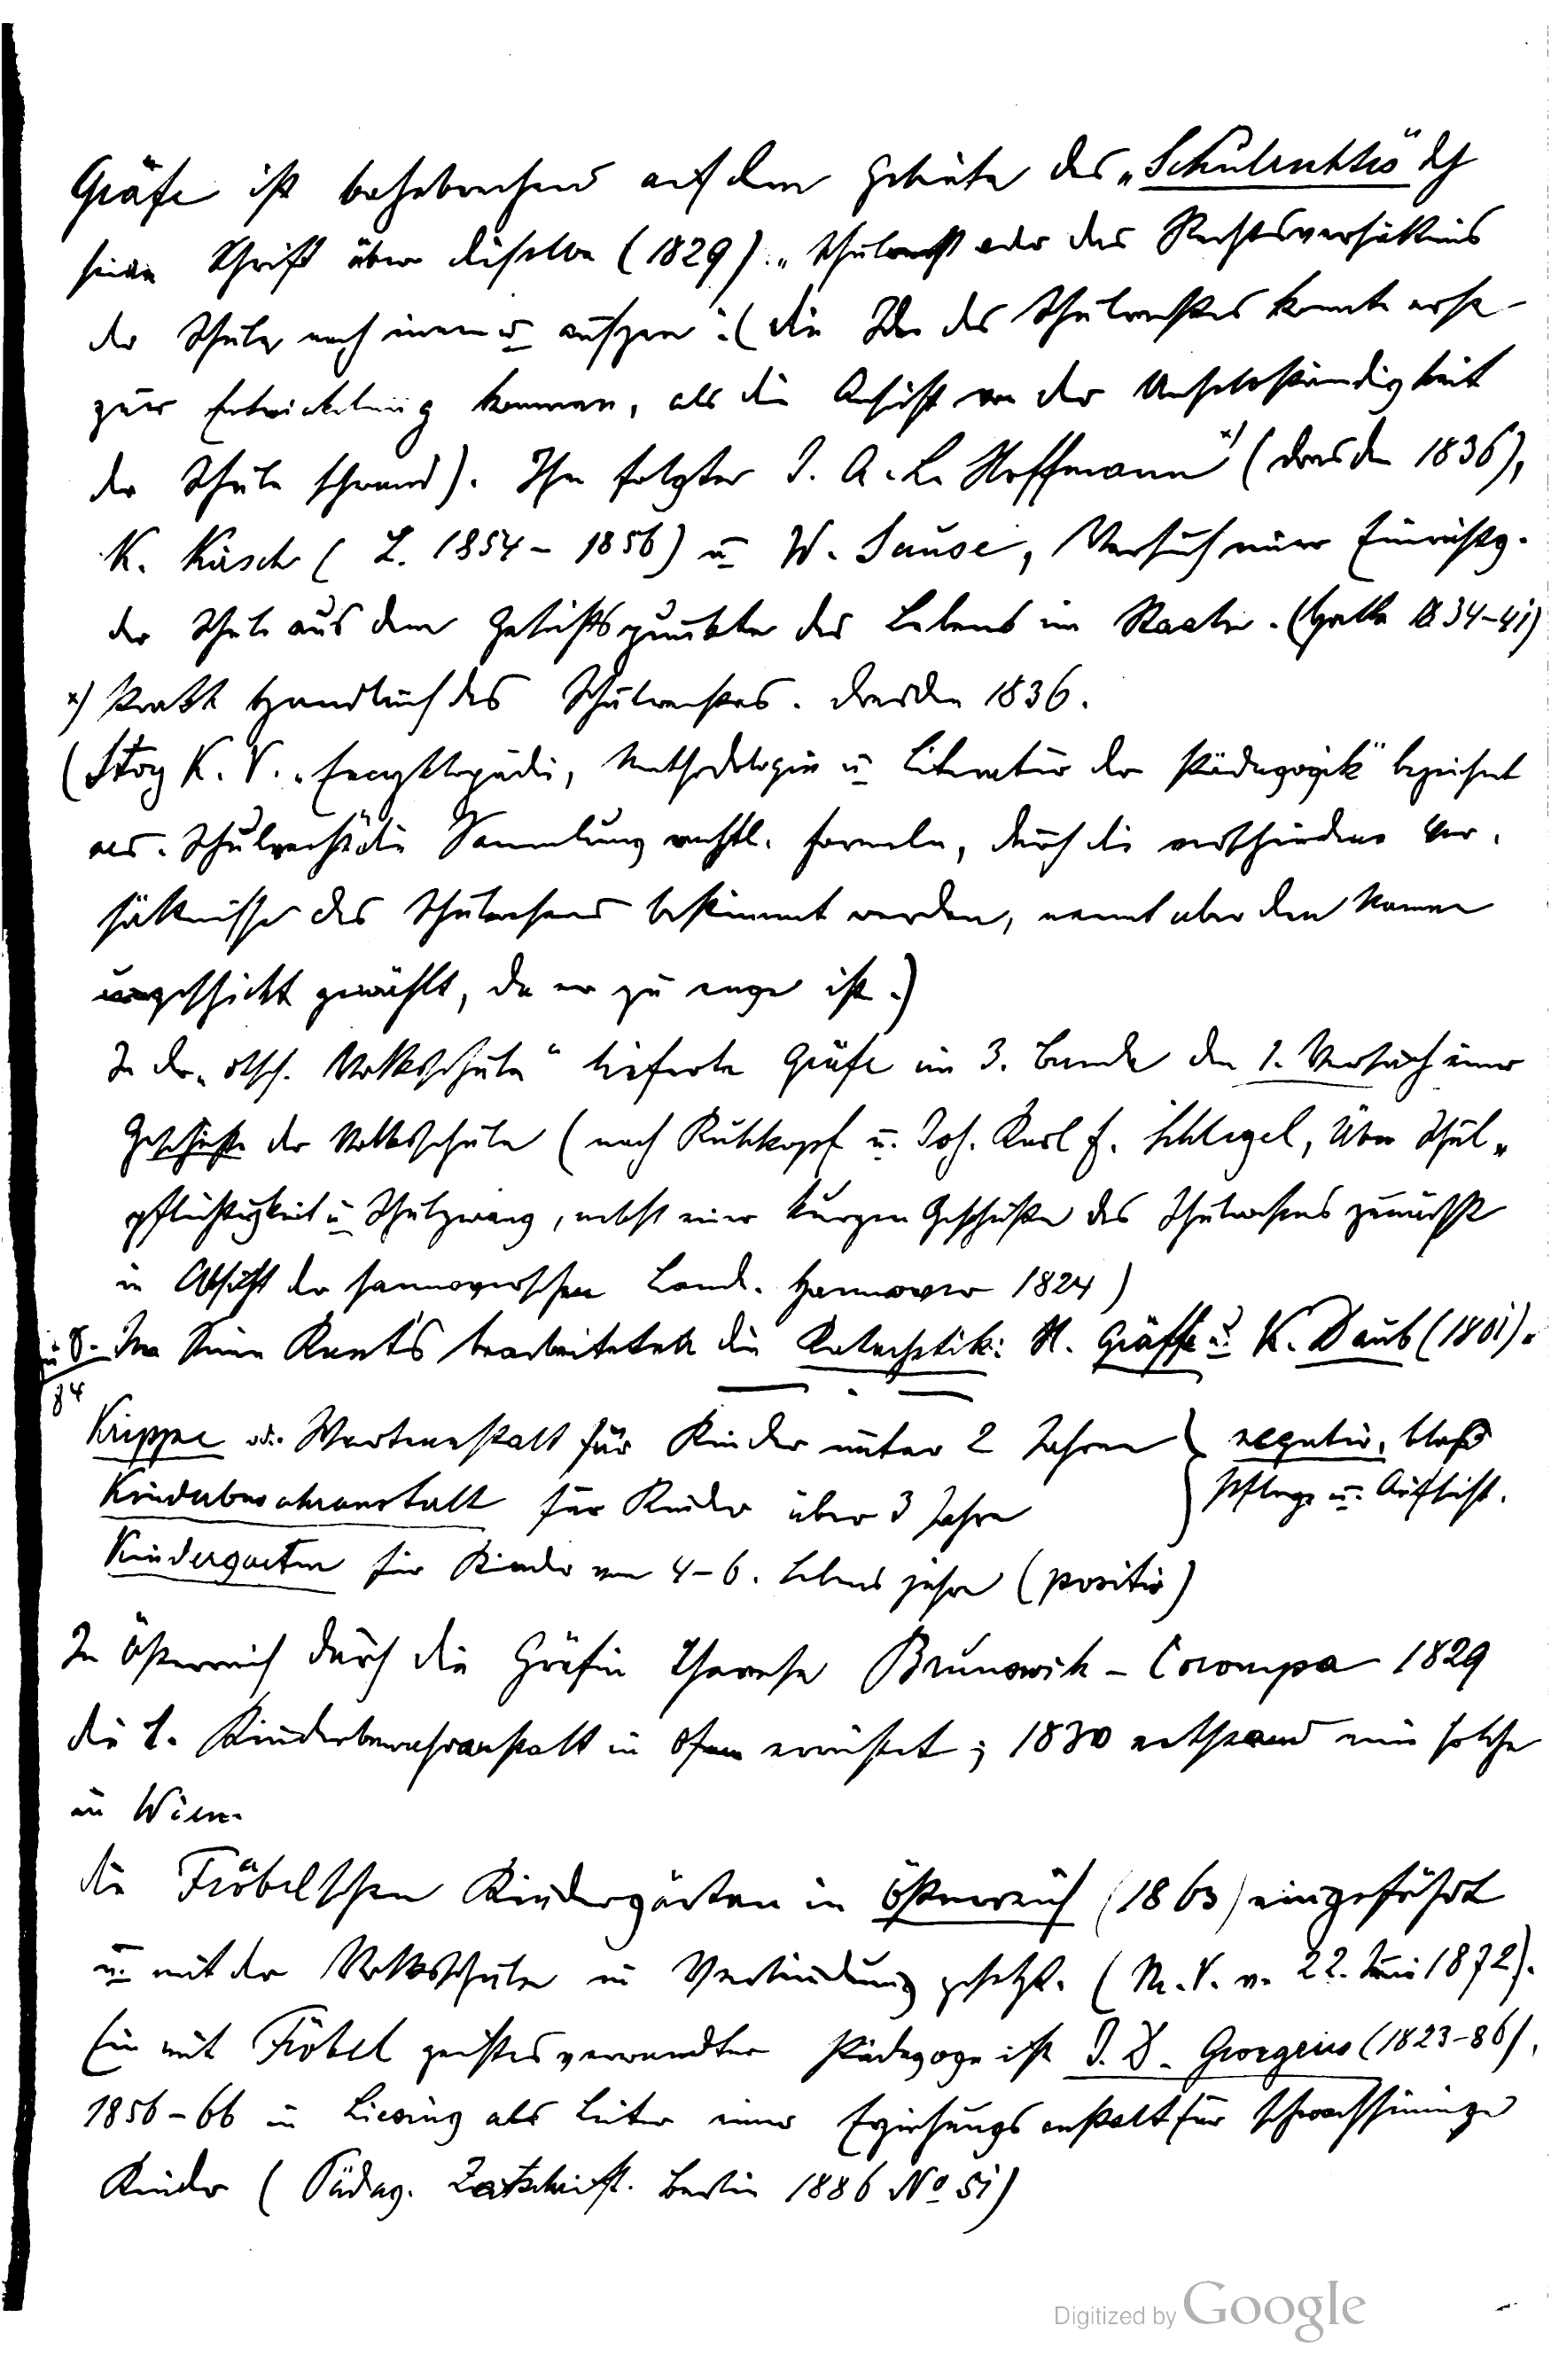 Gräfe ist bahnbrechend auf dem Gebiete des „Schulrechtes" dch
seine Schrift über dieselbe (1829). „Schulrecht oder das Rechtsverhältnis
der Schule nach innen u. aussen". (Die Idee des Schulrechtes konnte erst
zur Entwickelung kommen, als die Ansicht von der Unselbständigkeit
der Schule schwand). Ihm folgten J. A. L. Hoffmann x) (Dresden 1836),
K. Kirsch (L. 1854-1856) u. W. Sause, Versuch einer Einrichtg.
der Schule aus dem Gesichtspunkte des Lebens im Staate. (Halle 1834-41)
x) Prakt Handbuch des Schulrechtes. Dresden 1836.
(Stoy K. V. „Encyklopädie, Methodologie u. Literatur der Pädagogik" bezeichnet
als „Schulrecht" die Sammlung rechtl. Formeln, durch die verschiedene Ver-
hältnisse des Schulwesens bestimmt werden, nennt aber den Namen
ungeschickt gewählt, da er zu enge ist.)
In der „dtsch. Volksschule" lieferte Gräfe im 3. Bande den 1. Versuch einer
Geschichte der Volksschule (nach Ruhkopf u. Joh. Karl F. Schlegel, Über Schul-
pflichtigkeit u. Schulzwang, nebst einer kurzen Geschichte des Schulwesens zunächst
in Absicht der hannoverschen Lande. Hannover 1824)
u 8. Im Sinne Kants bearbeiteten die Katechetik: H. Gräffe u. K. Daub (1801).
84
Krippe od. Warteanstalt für Kinder unter 2 Jahren } negativ, bloß
Kinderbewahranstalt für Kinder über 3 Jahre } Pflege u. Aufsicht.
Kindergarten für Kinder vom 4-6. Lebensjahre (positiv)
In Österreich durch die Gräfin Therese Brunswik-Corompa 1829
die 1. Kinderbewahranstalt in Ofen errichtet; 1830 entstand eine solche
in Wien.
Die Fröbelschen Kindergärten in Österreich (1863) eingeführt
u. mit der Volksschule in Verbindung gesetzt. (M. V. v. 22. Juni 1872).
Ein mit Fröbel geistesverwandter Pädagoge ist J. D. Georgens (1823-86),
1856-66 in Liesing als Leiter einer Erziehungsanstalt für schwachsinnige
Kinder (Pädag. Zeitschrift. Berlin 1886 No 51)
Digitized by Google